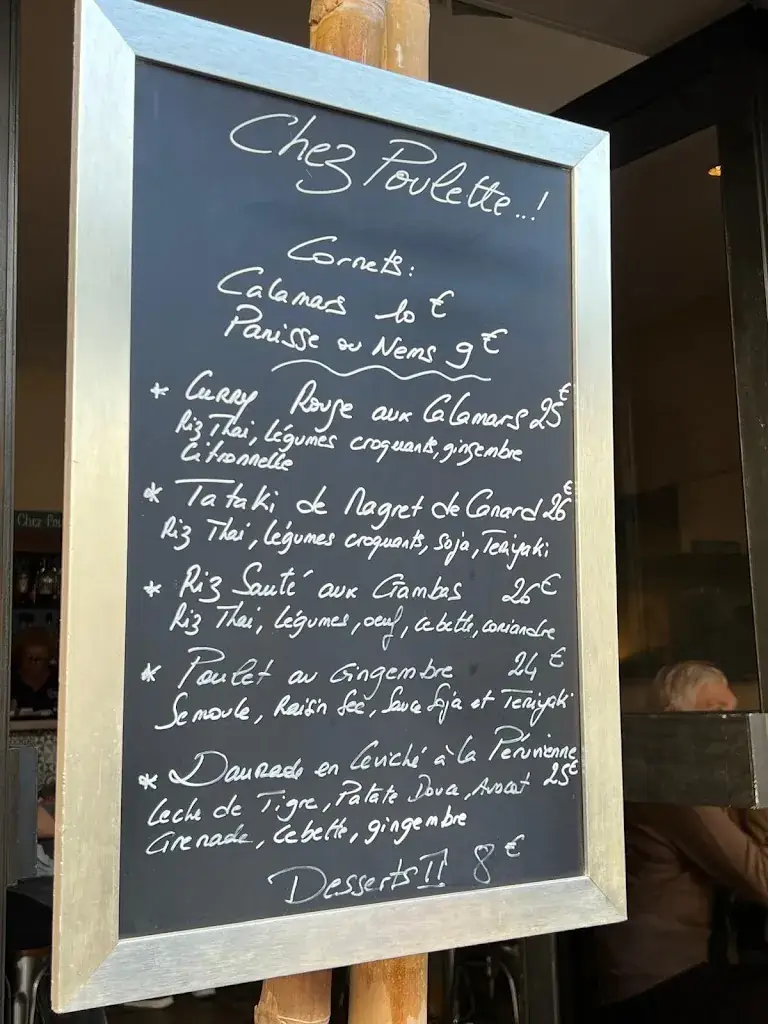 Chez Poulette..!
Cornets:
Calamars 10 €
Panisse ou Nems 9 €
* Curry Rouge aux Calamars 25 €
Riz Thai, légumes croquants, gingembre
Citronnelle
* Tataki de Magret de Canard 26 €
Riz Thai, légumes croquants, Soja, Teriyaki
* Riz Sauté aux Gambas 26 €
Riz Thai, légumes, oeuf, cebette, coriandre
* Poulet au Gingembre 24 €
Semoule, Raisin Sec, Sauce Soja et Teriyaki
* Daurade en Ceviché à la Péruvienne
Leche de Tigre, Patate Douce, Avocat 25 €
Grenade, Cebette, gingembre
Desserts !! 8 €